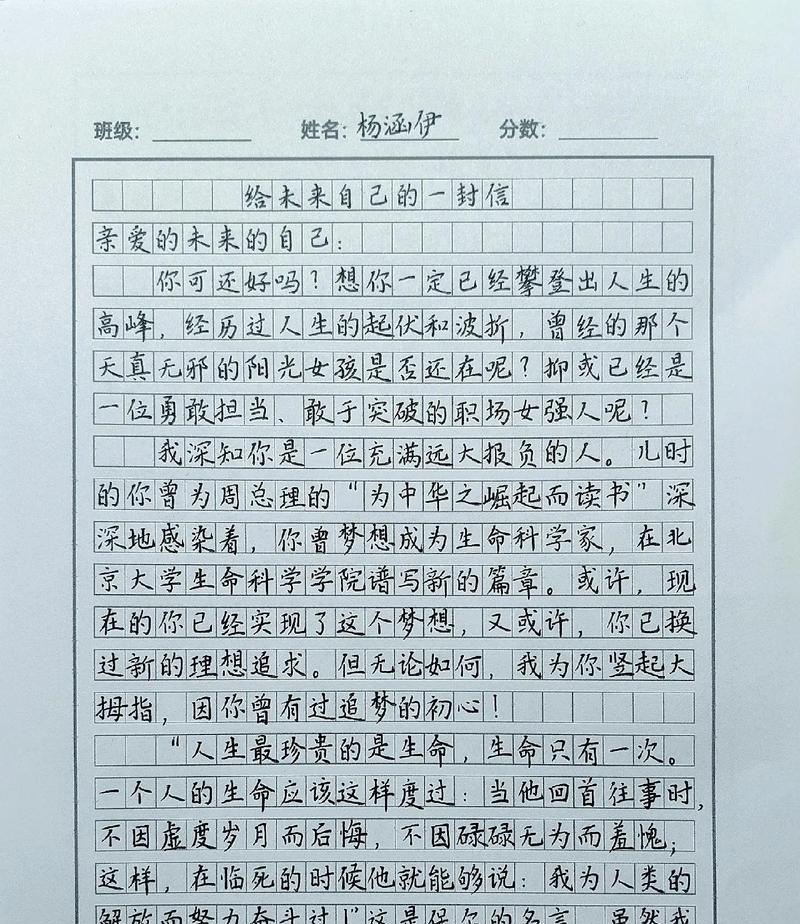 班级: 姓名: 杨涵伊 分数:
给未来自己的一封信
亲爱的未来的自己:
你可还好吗?想你一定已经攀登出人生的
高峰,经历过人生的起伏和波折,曾经的那个
天真无邪的阳光女孩是否还在呢?抑或已经是
一位勇敢担当、敢于突破的职场女强人呢?
我深知你是一位充满远大报负的人。儿时
的你曾为周总理的“为中华之崛起而读书”深
深地感染着,你曾梦想成为生命科学家,在北
京大学生命科学学院谱写新的篇章。或许,现
在的你已经实现了这个梦想,又或许,你已换
过新的理想追求。但无论如何,我为你竖起大
拇指,因你曾有过追梦的初心!
“人生最珍贵的是生命,生命只有一次。
一个人的生命应该这样度过:当他回首往事时,
不因虚度岁月而后悔,不因碌碌无为而羞愧;
这样,在临死的时候他就能够说:我为人类的
解放而努力奋斗过!”这是保尔的名言,虽然我